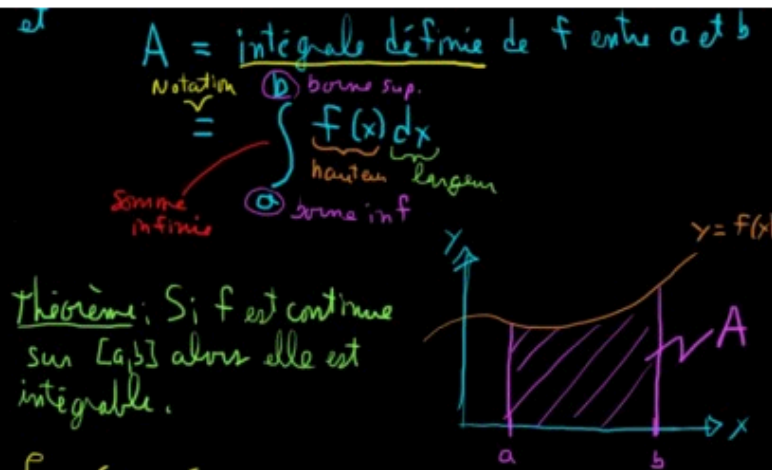 et
A = intégrale définie de f entre a et b
Notation
b borne sup.
= ∫ f(x) dx
hauteur largeur
somme
infinie
a borne inf
y = f(x)
y
Théorème: Si f est continue
sur [a,b] alors elle est
intégrable.
A
x
a b